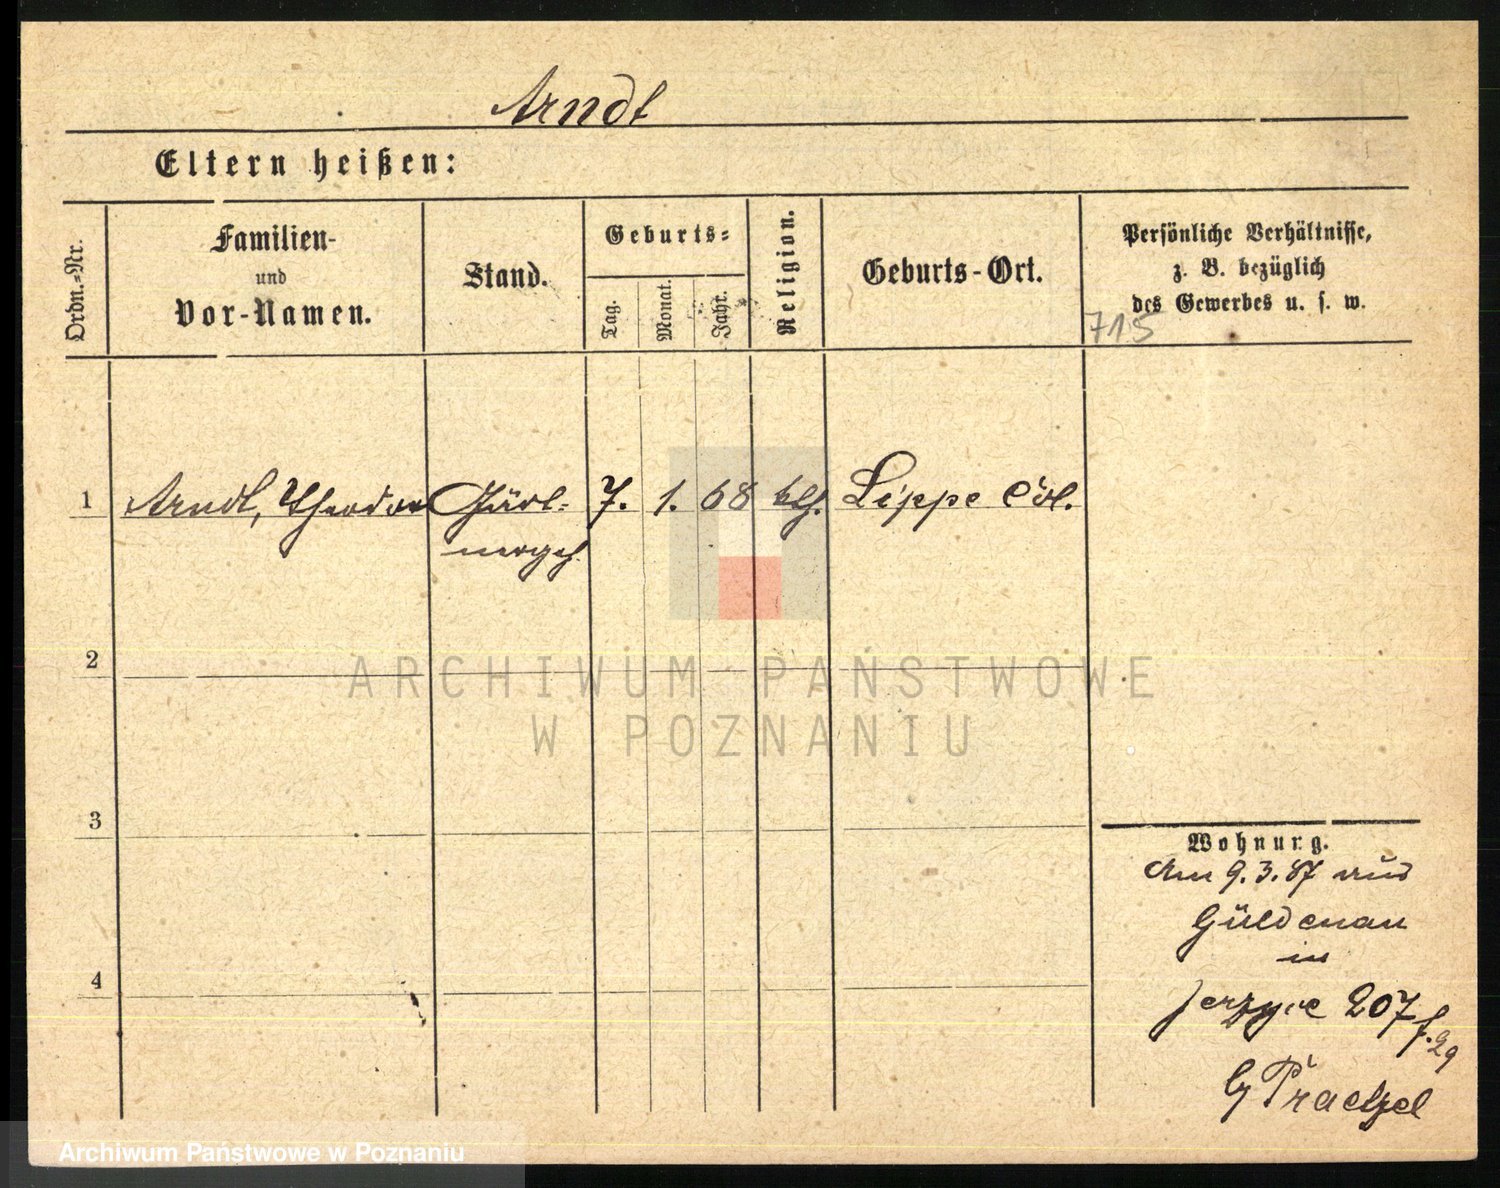 Arndt
Eltern heißen:
Ordn.-Nr.
Familien-
und
Vor-Namen.
Stand.
Geburts-
Tag.
Monat.
Jahr.
Religion.
Geburts-Ort.
Persönliche Verhältnisse,
z. B. bezüglich
des Gewerbes u. s. w.
715
1 Arndt, Theodor Gärt- 7. 1. 68 Lippe Col.
nergeh.
2
3
4
Wohnung.
Am 9.3.87 aus
Güldenau
in
Jerzyce 207 f. 29
b/ Praetzel
ARCHIWUM PAŃSTWOWE
W POZNANIU
Archiwum Państwowe w Poznaniu